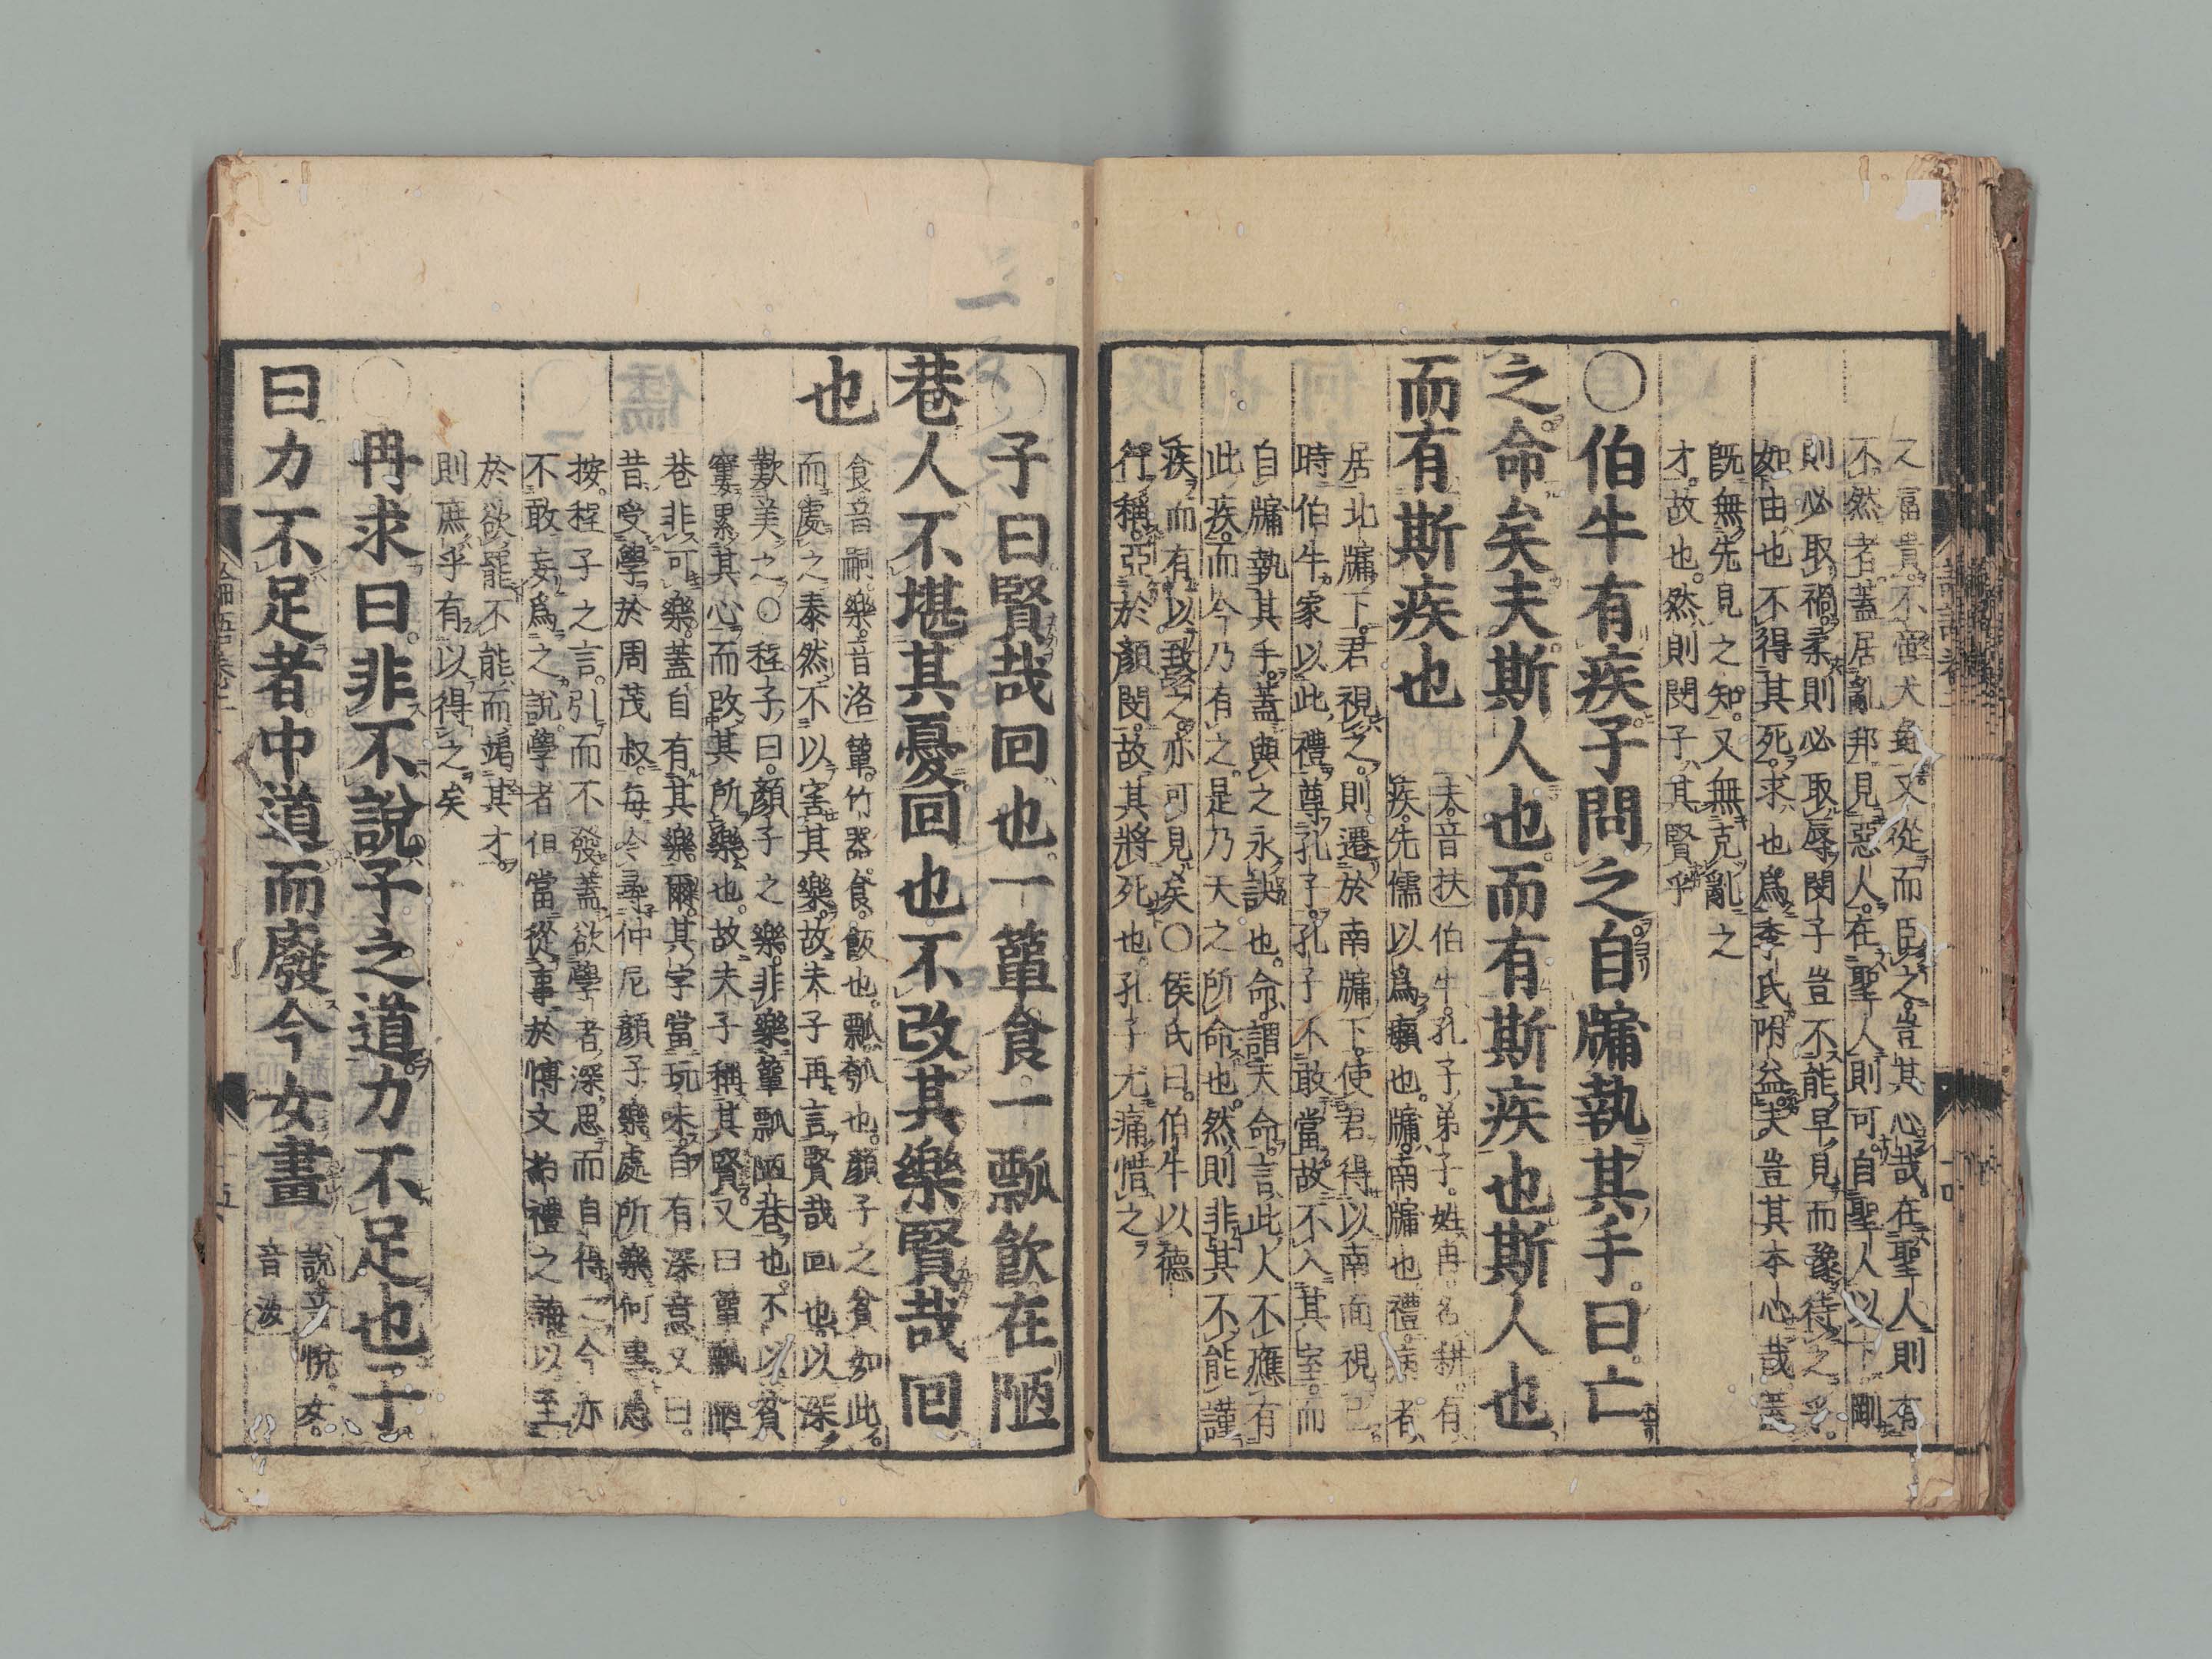 又富貴不啻犬彘又從而臣之豈其心哉在聖人則有
不然者蓋居亂邦見惡人在聖人則可自聖人以下剛
則必取禍柔則必取辱閔子豈不能早見而豫待之乎
如由也不得其死求也爲季氏附益夫豈其本心哉蓋
既無先見之知又無克亂之
才故也然則閔子其賢乎
○伯牛有疾子問之自牖執其手曰亡
之命矣夫斯人也而有斯疾也斯人也
而有斯疾也
夫音扶伯牛孔子弟子姓冉名耕有
疾先儒以爲癩也牖南牖也禮病者
居北牖下君視之則遷於南牖下使君得以南面視己
時伯牛家以此禮尊孔子孔子不敢當故不入其室而
自牖執其手蓋與之永訣也命謂天命言此人不應有
此疾而今乃有之是乃天之所命也然則非其不能謹
疾而有以致之亦可見矣○侯氏曰伯牛以德
行稱亞於顏閔故其將死也孔子尤痛惜之
○子曰賢哉回也一簞食一瓢飲在陋
巷人不堪其憂回也不改其樂賢哉回
也
食音嗣樂音洛簞竹器食飯也瓢瓠也顏子之貧如此
而處之泰然不以害其樂故夫子再言賢哉回也以深
歎美之○程子曰顏子之樂非樂簞瓢陋巷也不以貧
窶累其心而改其所樂也故夫子稱其賢又曰簞瓢陋
巷非可樂蓋自有其樂爾其字當玩味自有深意又曰
昔受學於周茂叔每令尋仲尼顏子樂處所樂何事愚
按程子之言引而不發蓋欲學者深思而自得之今亦
不敢妄爲之說學者但當從事於博文約禮之誨以至
於欲罷不能而竭其才
則庶乎有以得之矣
○冉求曰非不說子之道力不足也子
曰力不足者中道而廢今女畫
說音悅女
音汝